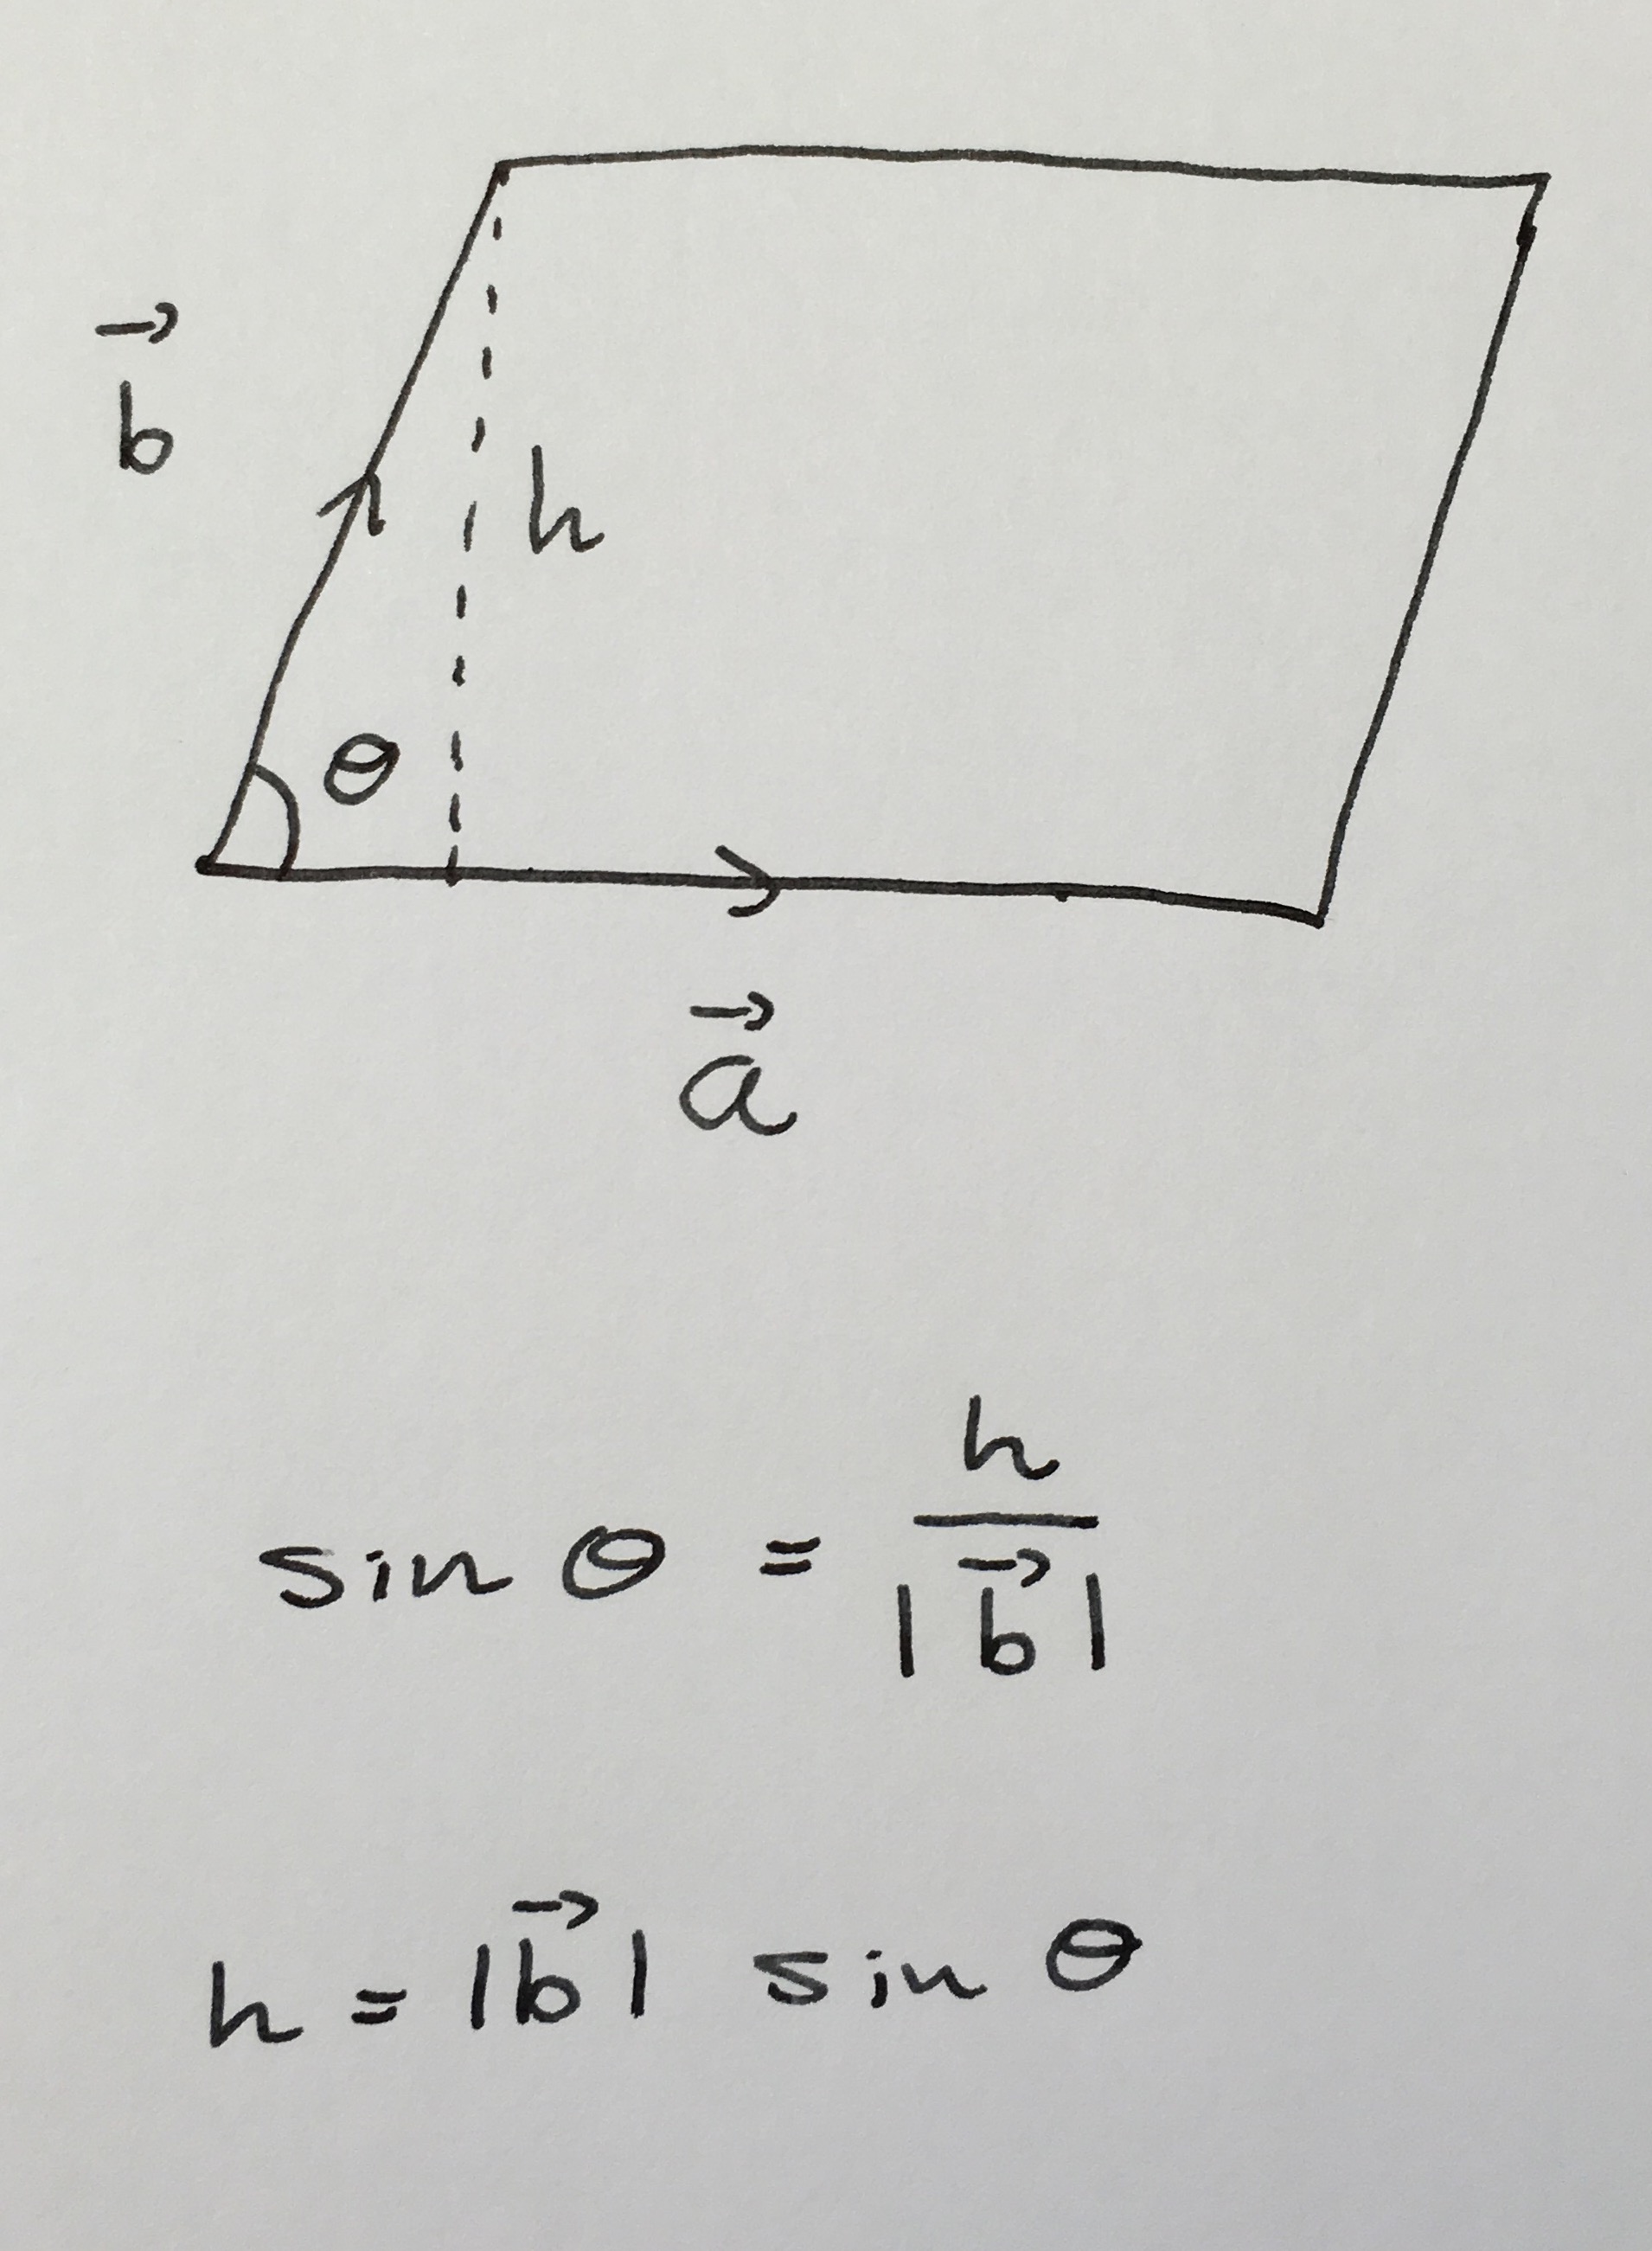 b⃗
h
θ
a⃗
sin θ = h / |b⃗|
h = |b⃗| sin θ